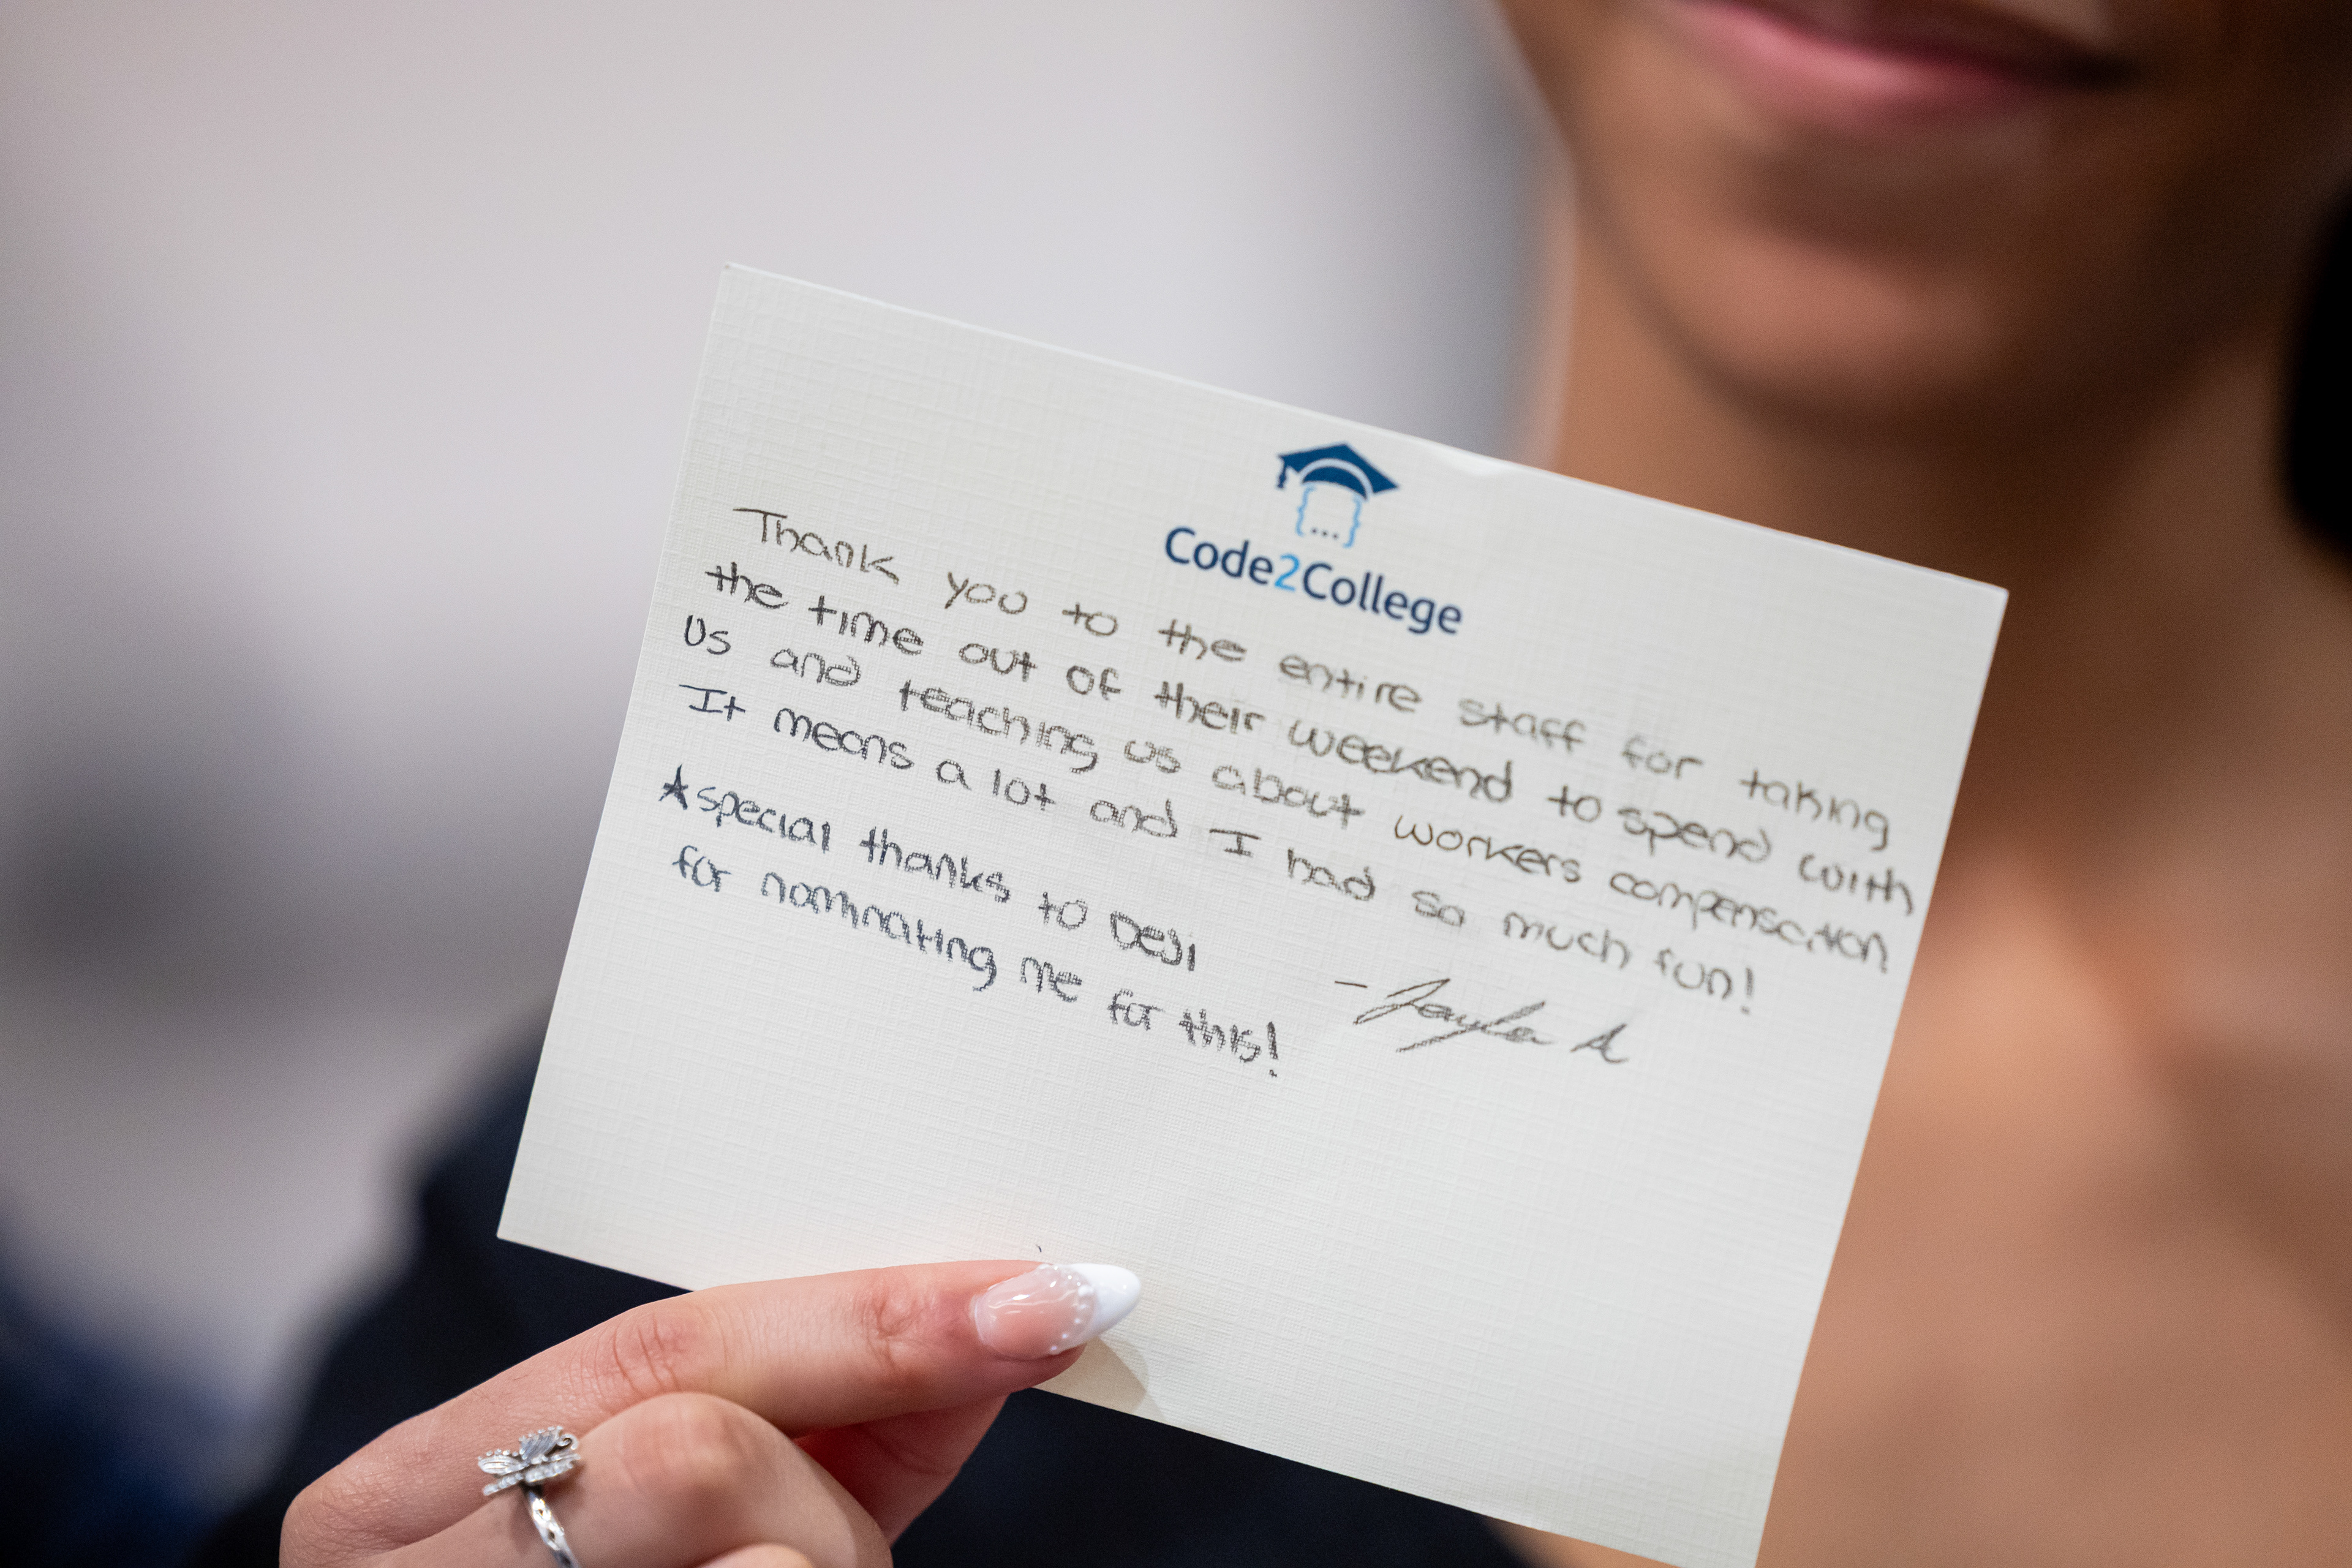 Code2College
Thank you to the entire staff for taking
the time out of their weekend to spend with
us and teaching us about workers compensation
It means a lot and I had so much fun!
★special thanks to Desi
for nominating me for this!
- Jayla A